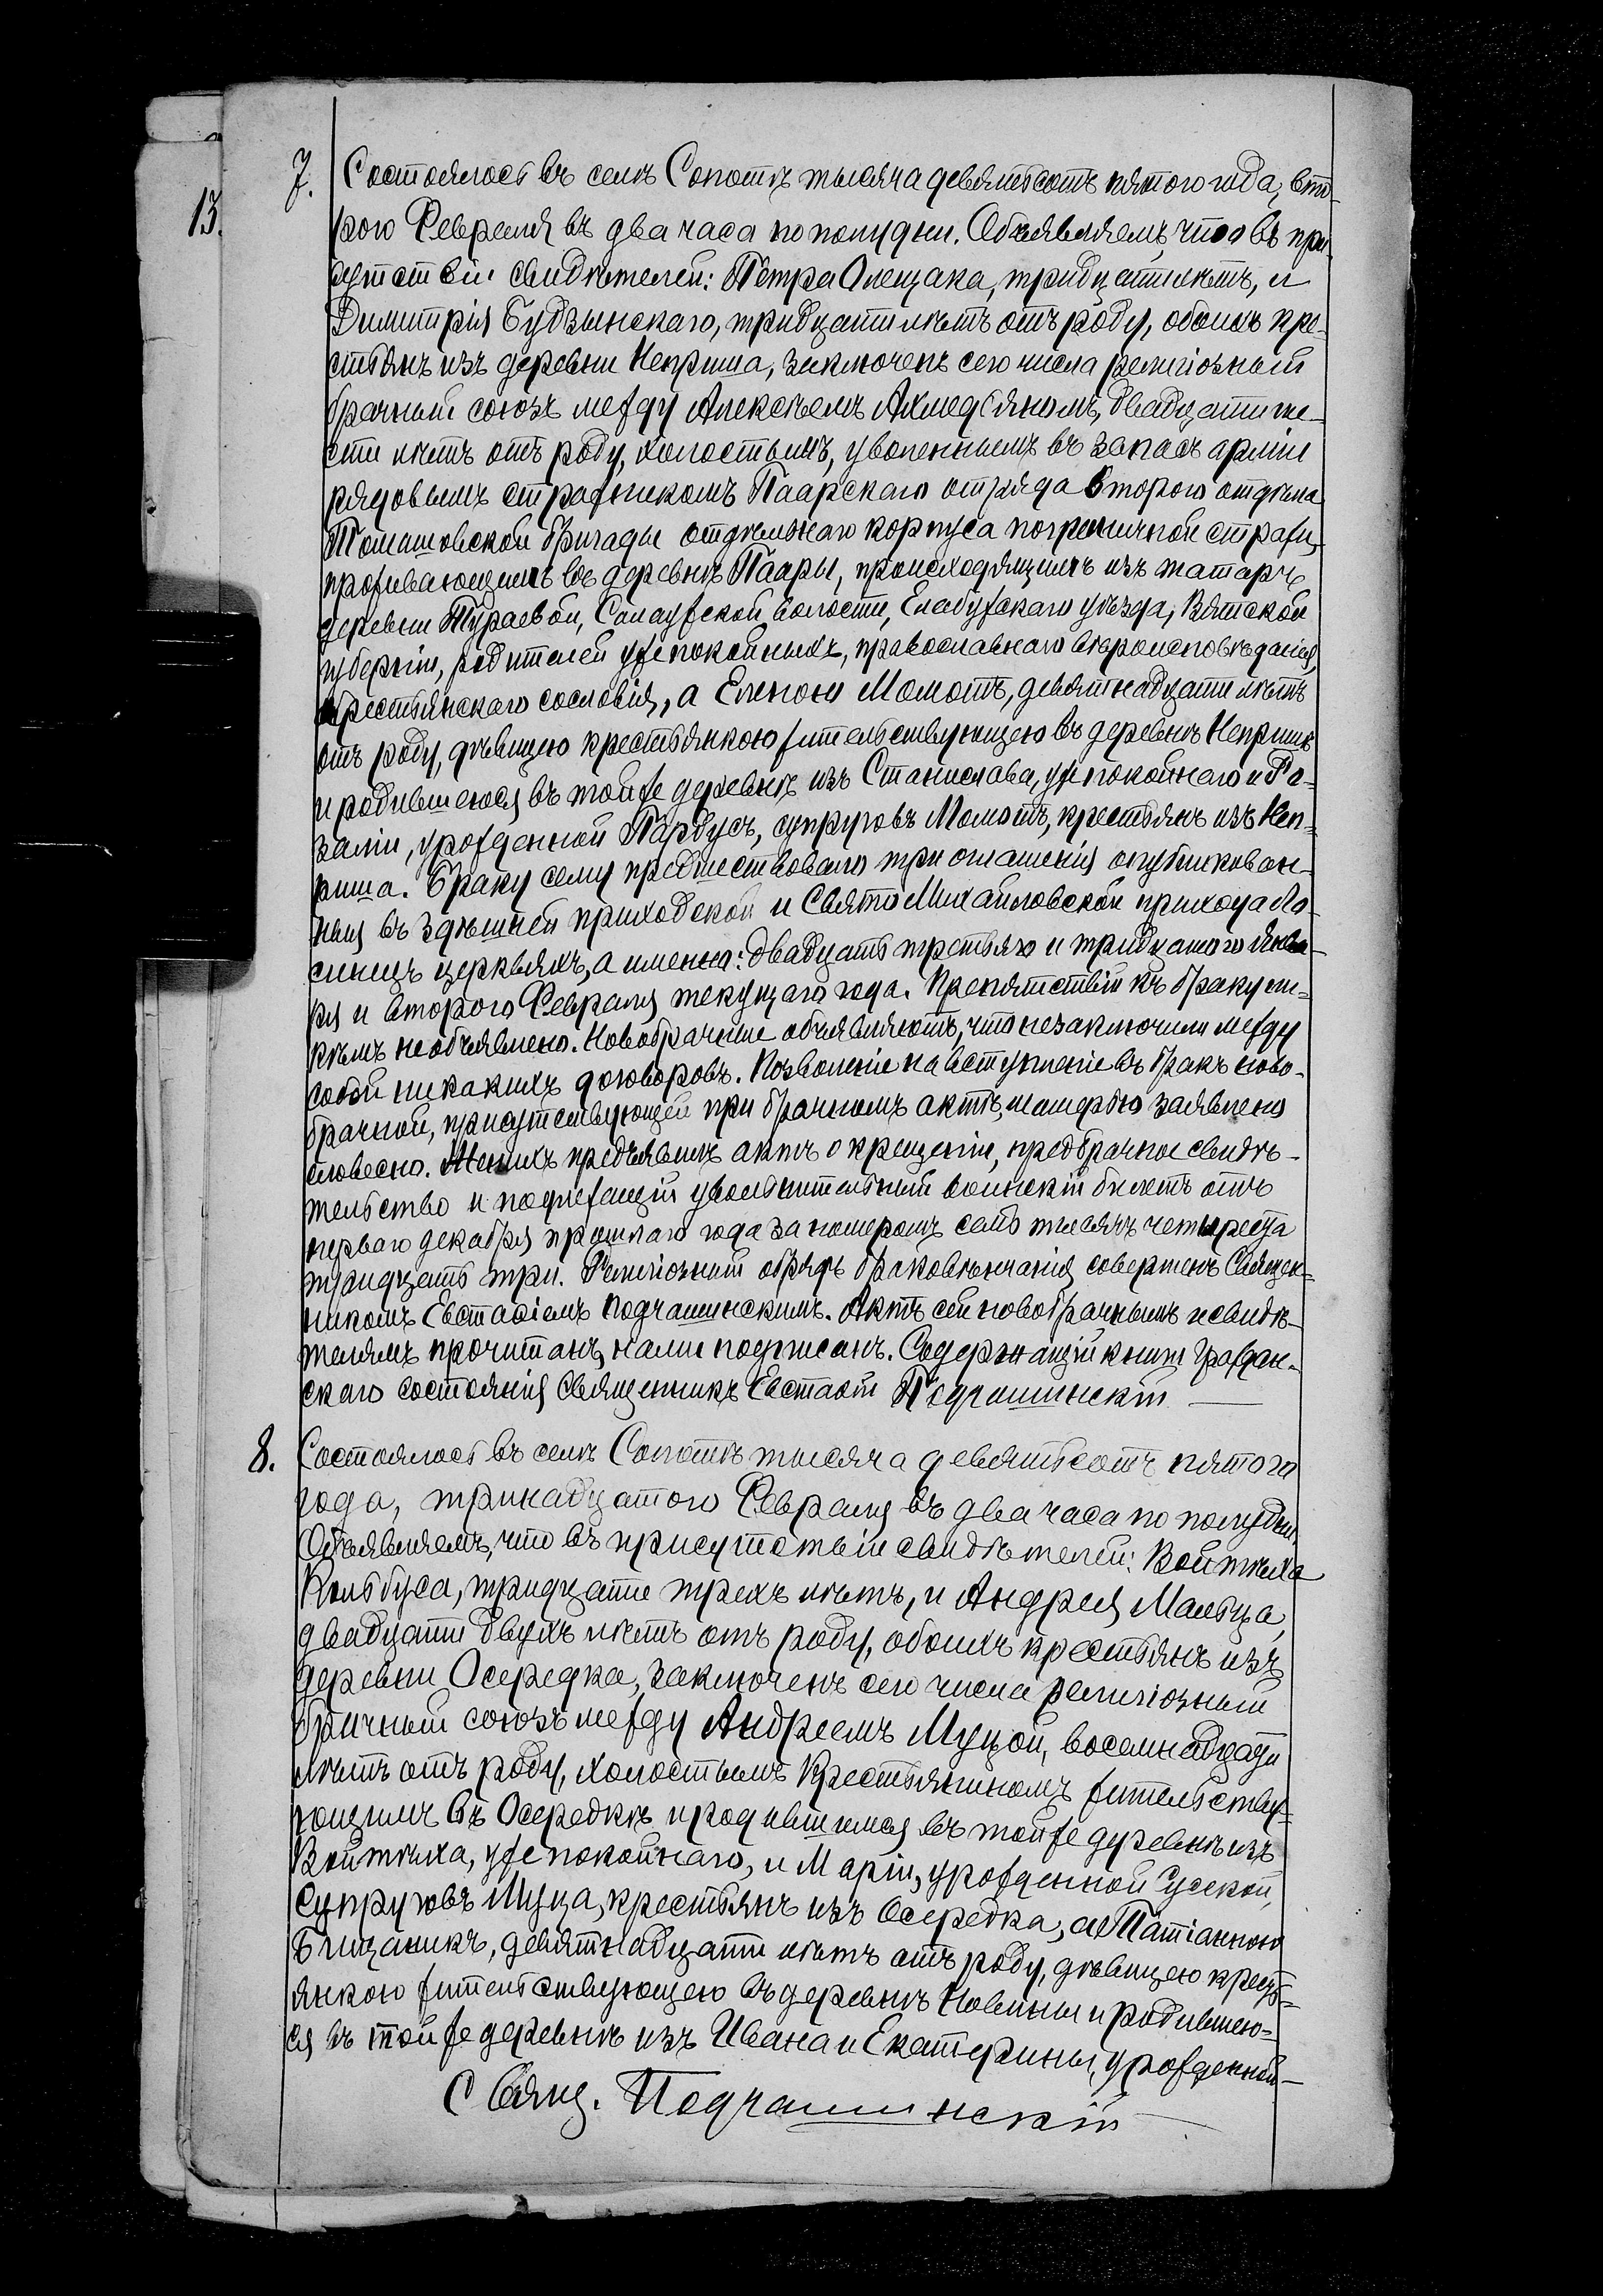 13.
7. Состоялось въ селѣ Сопотѣ тысяча девятьсотъ пятого года, вто-
рого Февраля въ два часа по полудни. Объявляемъ, что въ при-
сутствіи свидѣтелей: Петра Олещака, тридцати лѣтъ, и
Димитрія Будзынскаго, тридцати лѣтъ отъ роду, обоихъ кре-
стьянъ изъ деревни Неприша, заключенъ сего числа религіозный
брачный союзъ между Алексѣемъ Ахмедьяномъ, двадцати ше-
сти лѣтъ отъ роду, холостымъ, уволеннымъ въ запасъ арміи
рядовымъ стражникомъ Паарскаго отряда второго отдѣла
Томашовской бригады отдѣльнаго корпуса пограничной стражи,
проживающимъ въ деревнѣ Паары, происходящимъ изъ татаръ
деревни Тураевой, Салаужской волости, Елабужскаго уѣзда, Вятской
губерніи, родителей уже покойныхъ, православнаго вѣроисповѣданія,
крестьянскаго сословія, а Еленою Момотъ, девятнадцати лѣтъ
отъ роду, дѣвицею крестьянкою жительствующею въ деревнѣ Непришѣ
и родившеюся въ той же деревнѣ изъ Станислава, уже покойнаго и Ро-
заліи, урожденной Парбусъ, супруговъ Момотъ, крестьянъ изъ Неп-
риша. Браку сему предшествовало три оглашенія опубликован-
ныя въ здѣшней приходской и Свято Михайловской прихода Ло-
синецъ церквяхъ, а именно: двадцать третьяго и тридцатого Янва-
ря и второго Февраля текущаго года. Препятствій къ браку ни-
кѣмъ не объявлено. Новобрачные объявляютъ, что не заключили между
собой никакихъ договоровъ. Позволеніе на вступленіе въ бракъ ново-
брачной, присутствующей при брачномъ актѣ, матерью заявлено
словесно. Женихъ предъявилъ актъ о крещеніи, предбрачное свидѣ-
тельство и подлежащій увольнительный воинскій билетъ отъ
перваго декабря прошлаго года за номеромъ семь тысячъ четыреста
тридцать три. Религіозный обрядъ браковѣнчанія совершенъ Священ-
никомъ Евстафіемъ Подчашинскимъ. Актъ сей новобрачнымъ и свидѣ-
телямъ прочитанъ, нами подписанъ. Содержащій книги Граждан-
скаго состоянія Священникъ Евстафій Подчашинскій
8. Состоялось въ селѣ Сопотѣ тысяча девятьсотъ пятого
года, тринадцатого Февраля въ два часа по полудни.
Объявляемъ, что въ присутствіи свидѣтелей: Войтѣха
Кольбуса, тридцати трехъ лѣтъ, и Андрея Мальца,
двадцати двухъ лѣтъ отъ роду, обоихъ крестьянъ изъ
деревни Осередка, заключенъ сего числа религіозный
брачный союзъ между Андреемъ Муцой, восемнадцати
лѣтъ отъ роду, холостымъ крестьяниномъ жительству-
ющимъ въ Осередкѣ и родившимся въ той же деревнѣ изъ
Войтѣха, уже покойнаго, и Маріи, урожденной Суской,
супруговъ Муца, крестьянъ изъ Осередка, а Татіанною
Блищаникъ, девятнадцати лѣтъ отъ роду, дѣвицею кресть-
янкою жительствующею въ деревнѣ Новины и родившею-
ся въ той же деревнѣ изъ Ивана и Екатерины, урожденной-
Свящ. Подчашинскій